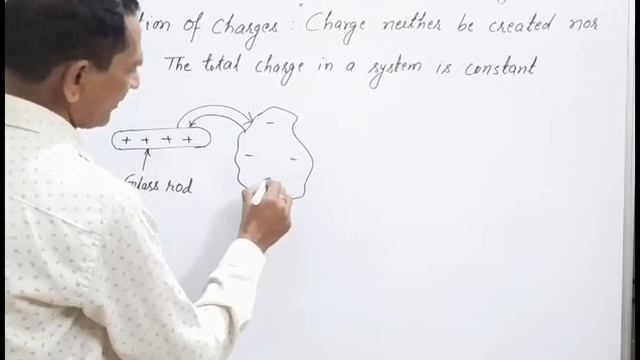 of Charges : "Charge neither be created nor
The total charge in a system is constant
+ + + +
-
- -
Glass rod